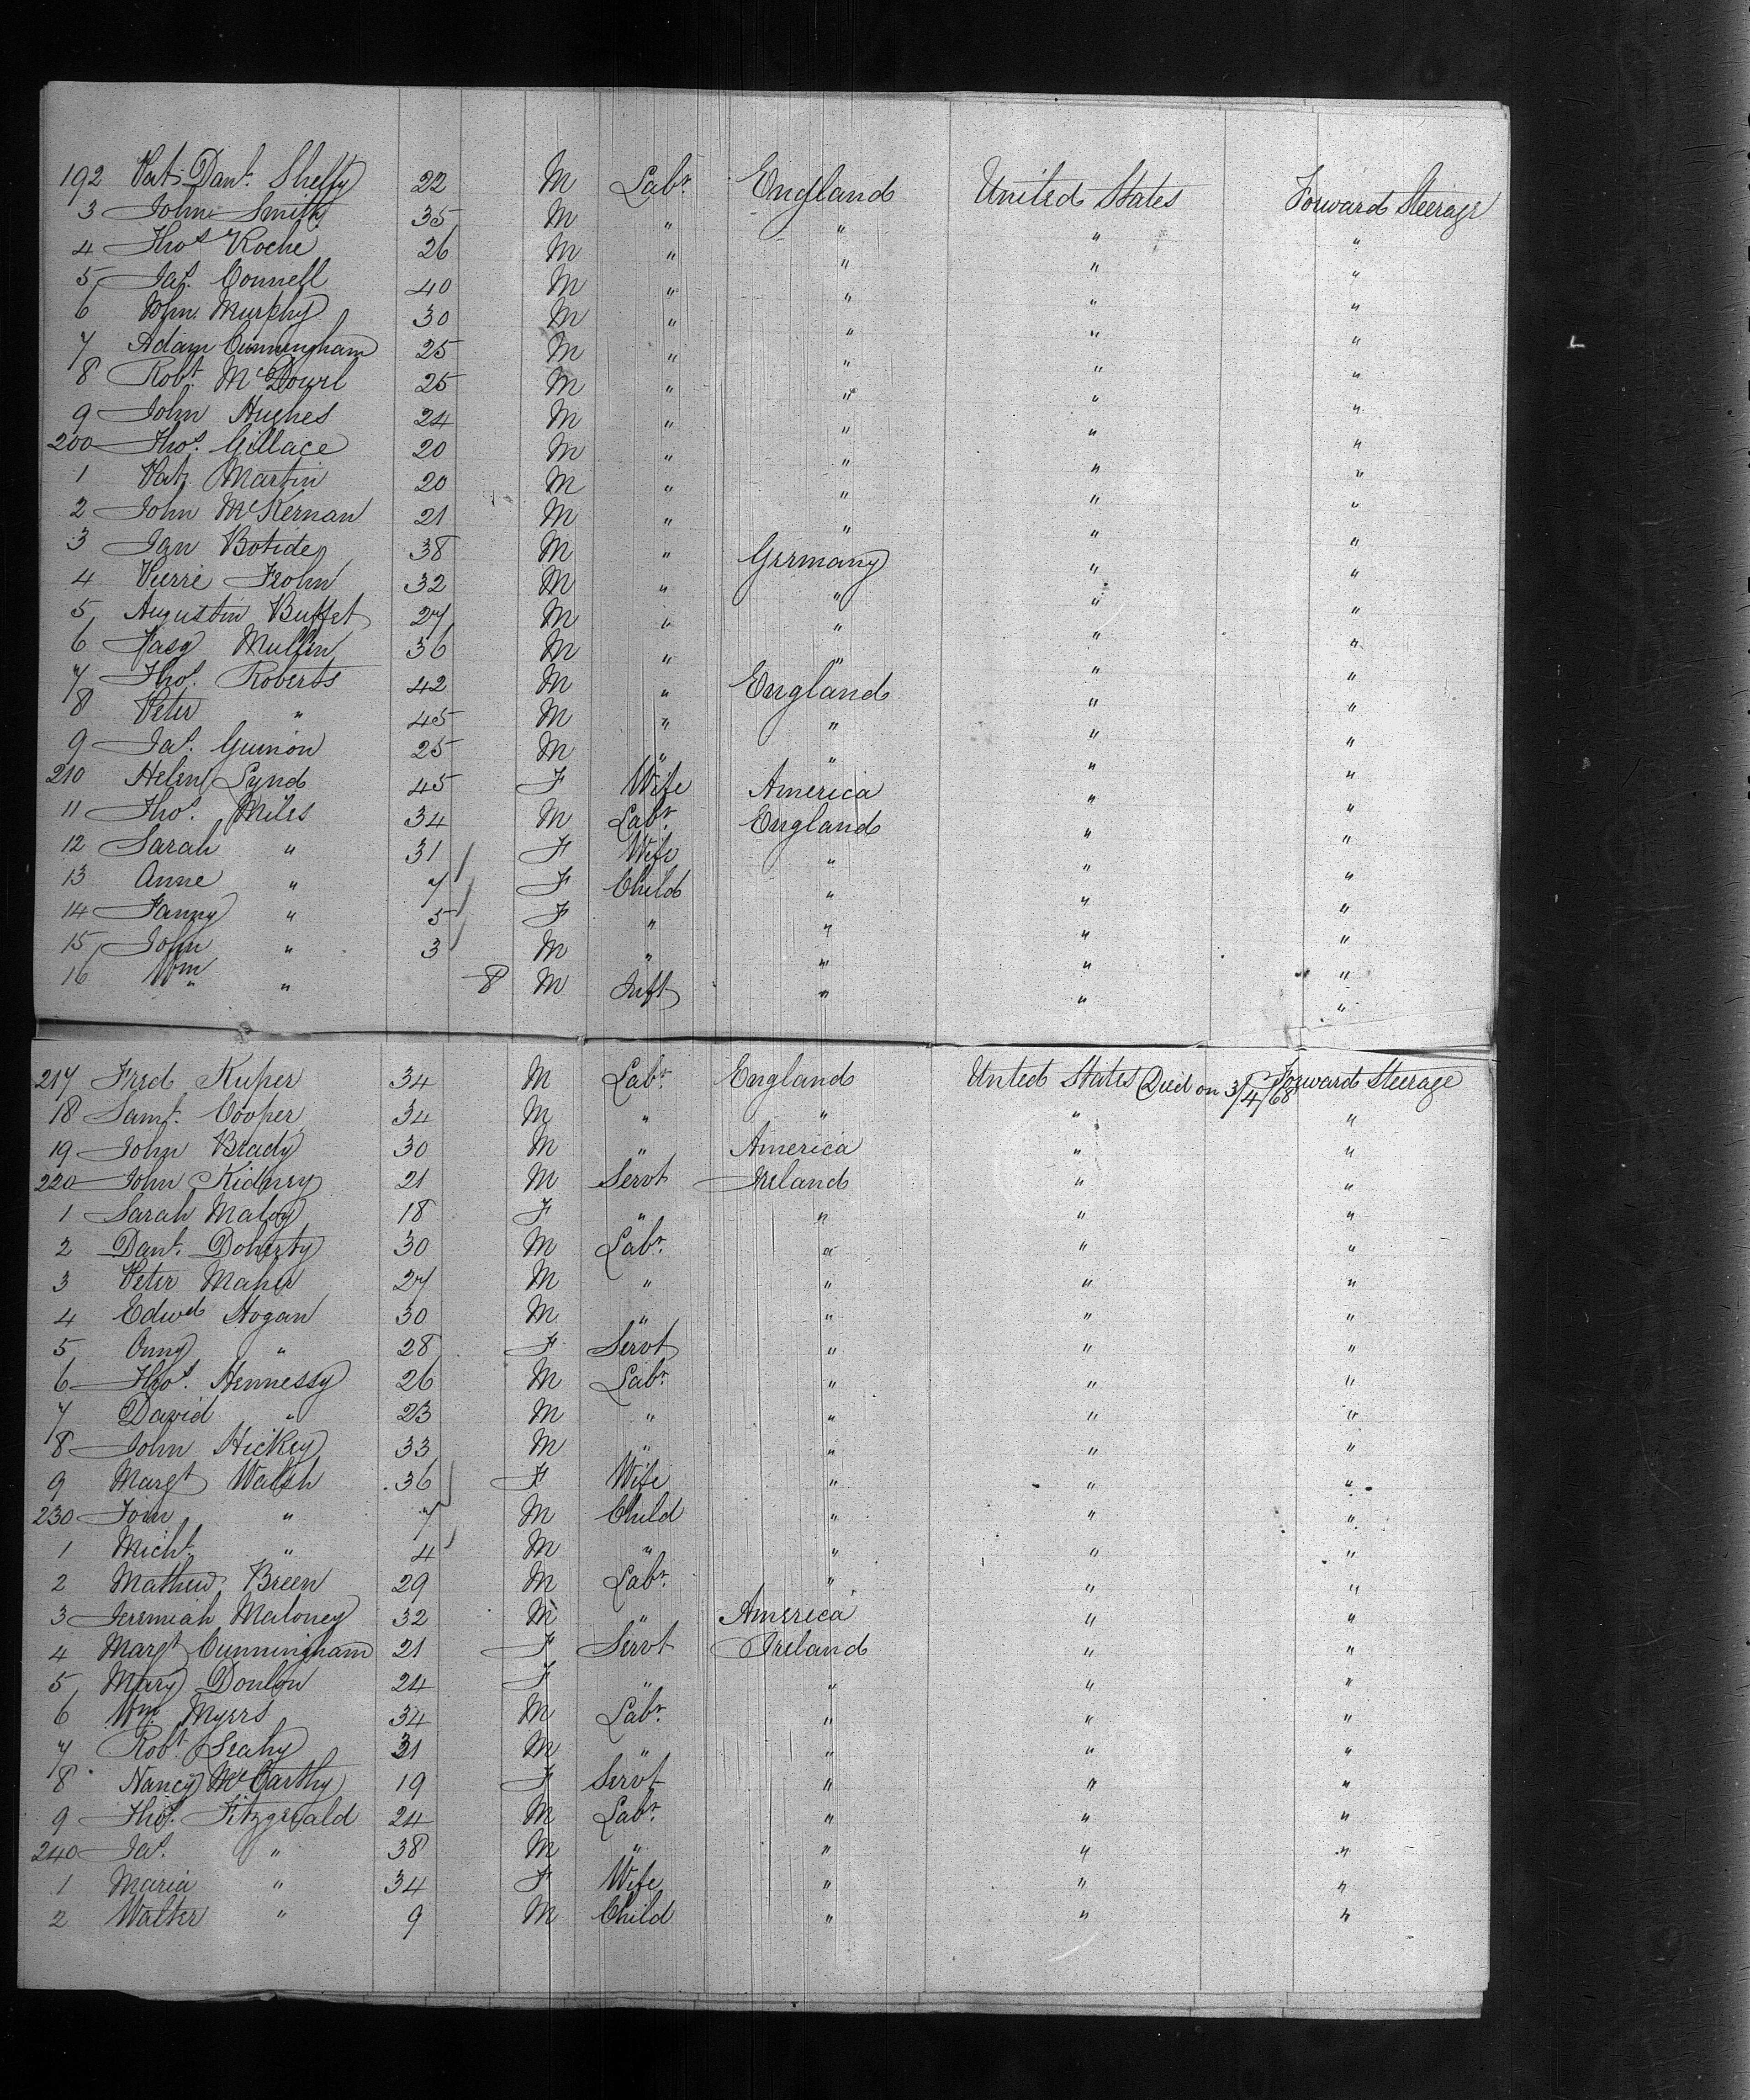 192 Pat. Danl. Sheffy 22 M Labr. England United States Forward Steerage
3 John Smith 35 M " " " "
4 Thos Roche 26 M " " " "
5 Jas. Connell 40 M " " " "
6 John Murphy 30 M " " " "
7 Adam Cunningham 25 M " " " "
8 Robt. McDowel 25 M " " " "
9 John Hughes 24 M " " " "
200 Thos. Gillace 20 M " " " "
1 Patk. Martin 20 M " " " "
2 John McKernan 21 M " " " "
3 Jan Botide 38 M " Germany " "
4 Pierre Frohn 32 M " " " "
5 Augustin Buffet 27 M " " " "
6 Mullin 36 M " " " "
7 Thos. Roberts 42 M " England " "
8 Peter " 45 M " " " "
9 Jas. Guinon 25 M " " " "
210 Helen Lynd 45 F Wife America " "
11 Thos. Miles 34 M Labr. England " "
12 Sarah " 31 F Wife " " "
13 Anne " 7 F Child " " "
14 Fanny " 5 F " " " "
15 John " 3 M " " " "
16 Wm " 8 M Inft " " "
217 Fred Kuper 34 M Labr. England United States Died on 3/4/68 Forward Steerage
18 Saml. Cooper 34 M " " " "
19 John Brady 30 M " America " "
220 John Kidney 21 M Servt Ireland " "
1 Sarah Maloy 18 F " " " "
2 Danl. Doherty 30 M Labr. " " "
3 Peter Maher 27 M " " " "
4 Edwd Hogan 30 M " " " "
5 Anny " 28 F Servt " " "
6 Thos. Hennessy 26 M Labr. " " "
7 David " 23 M " " " "
8 John Hickey 33 M " " " "
9 Margt Walsh 36 F Wife " " "
230 Tom " 7 M Child " " "
1 Michl. " 4 M " " " "
2 Mathew Breen 29 M Labr. " " "
3 Jeremiah Maloney 32 M " America " "
4 Margt Cunningham 21 F Servt Ireland " "
5 Mary Donlon 24 F " " " "
6 Wm. Myers 34 M Labr. " " "
7 Robt. Leahy 31 M " " " "
8 Nancy McCarthy 19 F Servt " " "
9 Thos. Fitzgerald 24 M Labr. " " "
240 Jas. " 38 M " " " "
1 Maria " 34 F Wife " " "
2 Walter " 9 M Child " " "